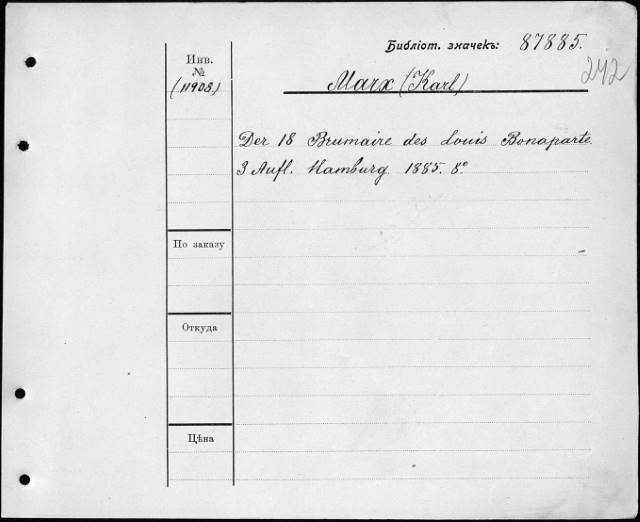 Библіот. значекъ: 87885.
242
Инв.
№
(11908.)
Marx (Karl)
Der 18 Brumaire des Louis Bonaparte.
3 Aufl. Hamburg. 1885. 8°
По заказу
Откуда
Цѣна